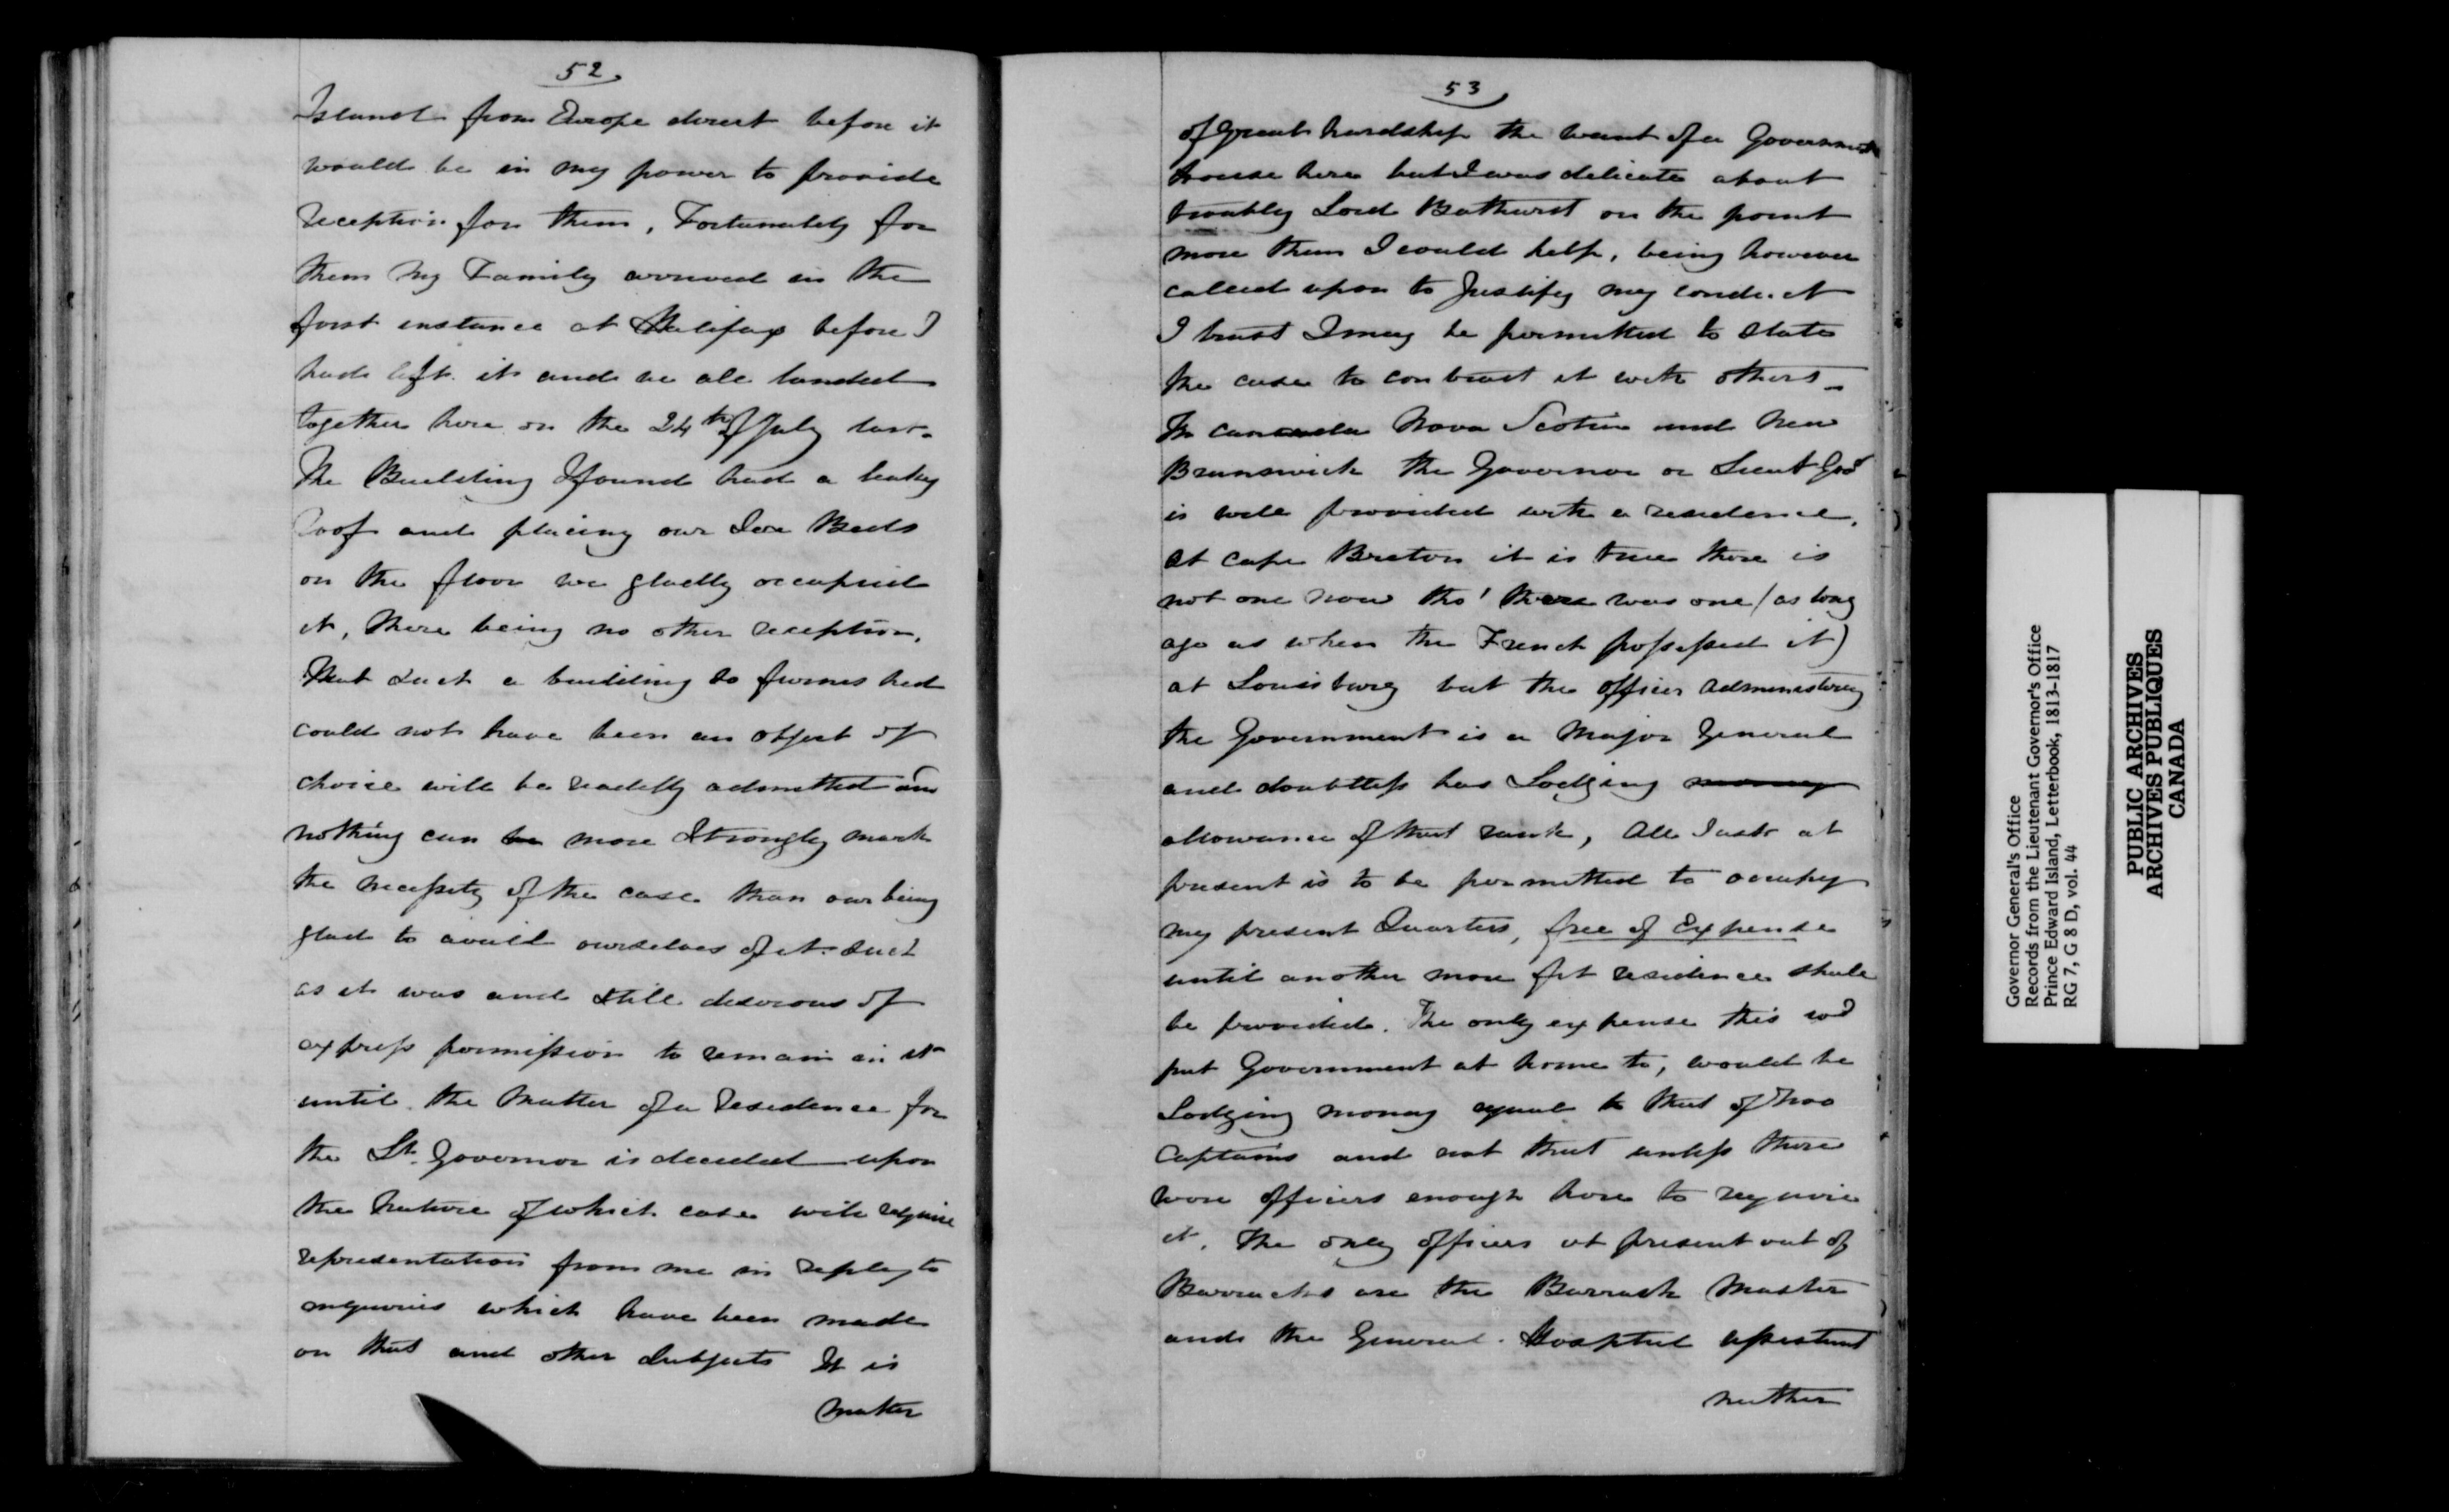 52
Island from Europe direct before it
would be in my power to provide
reception for them, Fortunately for
them my Family arrived in the
first instance at Halifax before I
had left it and we all landed
together here on the 24th of July last.
The Building I found had a leaky
roof and placing our Sea Beds
on the floor we gladly occupied
it, there being no other reception.
That such a building so furnished
could not have been an object of
choice will be readily admitted and
nothing can be more Strongly mark
the necessity of the case than our being
glad to avail ourselves of it such
as it was and still desirous of
express permission to remain in it
until the Matter of a residence for
the Lt. Governor is decided upon
the Nature of which case will require
representation from me in reply to
enquiries which have been made
on that and other Subjects It is
matter
53
of great hardship the want of a Government
house here but I was delicate about
troubling Lord Bathurst on the point
more than I could help, being however
called upon to Justify my conduct
I trust I may be permitted to State
the case to contrast it with others_
In Canada Nova Scotia and New
Brunswick the Governor or Lieut Govr
is well provided with a residence,
at Cape Breton it is true there is
not one now tho' there was one (as long
ago as when the French possessed it)
at Louisburg but the officer administering
the Government is a Major General
and doubtless has Lodging money
allowance of that rank, All I ask at
present is to be permitted to occupy
my present Quarters, free of Expense
until another more fit residence shall
be provided. The only expense this wd
put Government at home to, would be
Lodging money equal to that of two
Captains and not that unless there
were officers enough here to require
it. The only officers at present out of
Barracks are the Barrack Master
and the General Hospital assistant
neither
Governor General's Office
Records from the Lieutenant Governor's Office
Prince Edward Island, Letterbook, 1813-1817
RG 7, G 8 D, vol. 44
PUBLIC ARCHIVES
ARCHIVES PUBLIQUES
CANADA